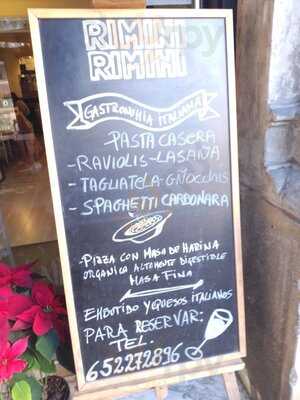 RIMINI
RIMINI
GASTRONOMIA ITALIANA
PASTA CASERA
- RAVIOLIS - LASAÑA
- TAGLIATELA - GÑOCCHIS
- SPAGHETTI CARBONARA
- PIZZA CON MASA DE HARINA
ORGANICA ALTAMENTE DIGESTIBLE
MASA FINA
EMBUTIDO Y QUESOS ITALIANOS
PARA RESERVAR:
TEL.
652272896